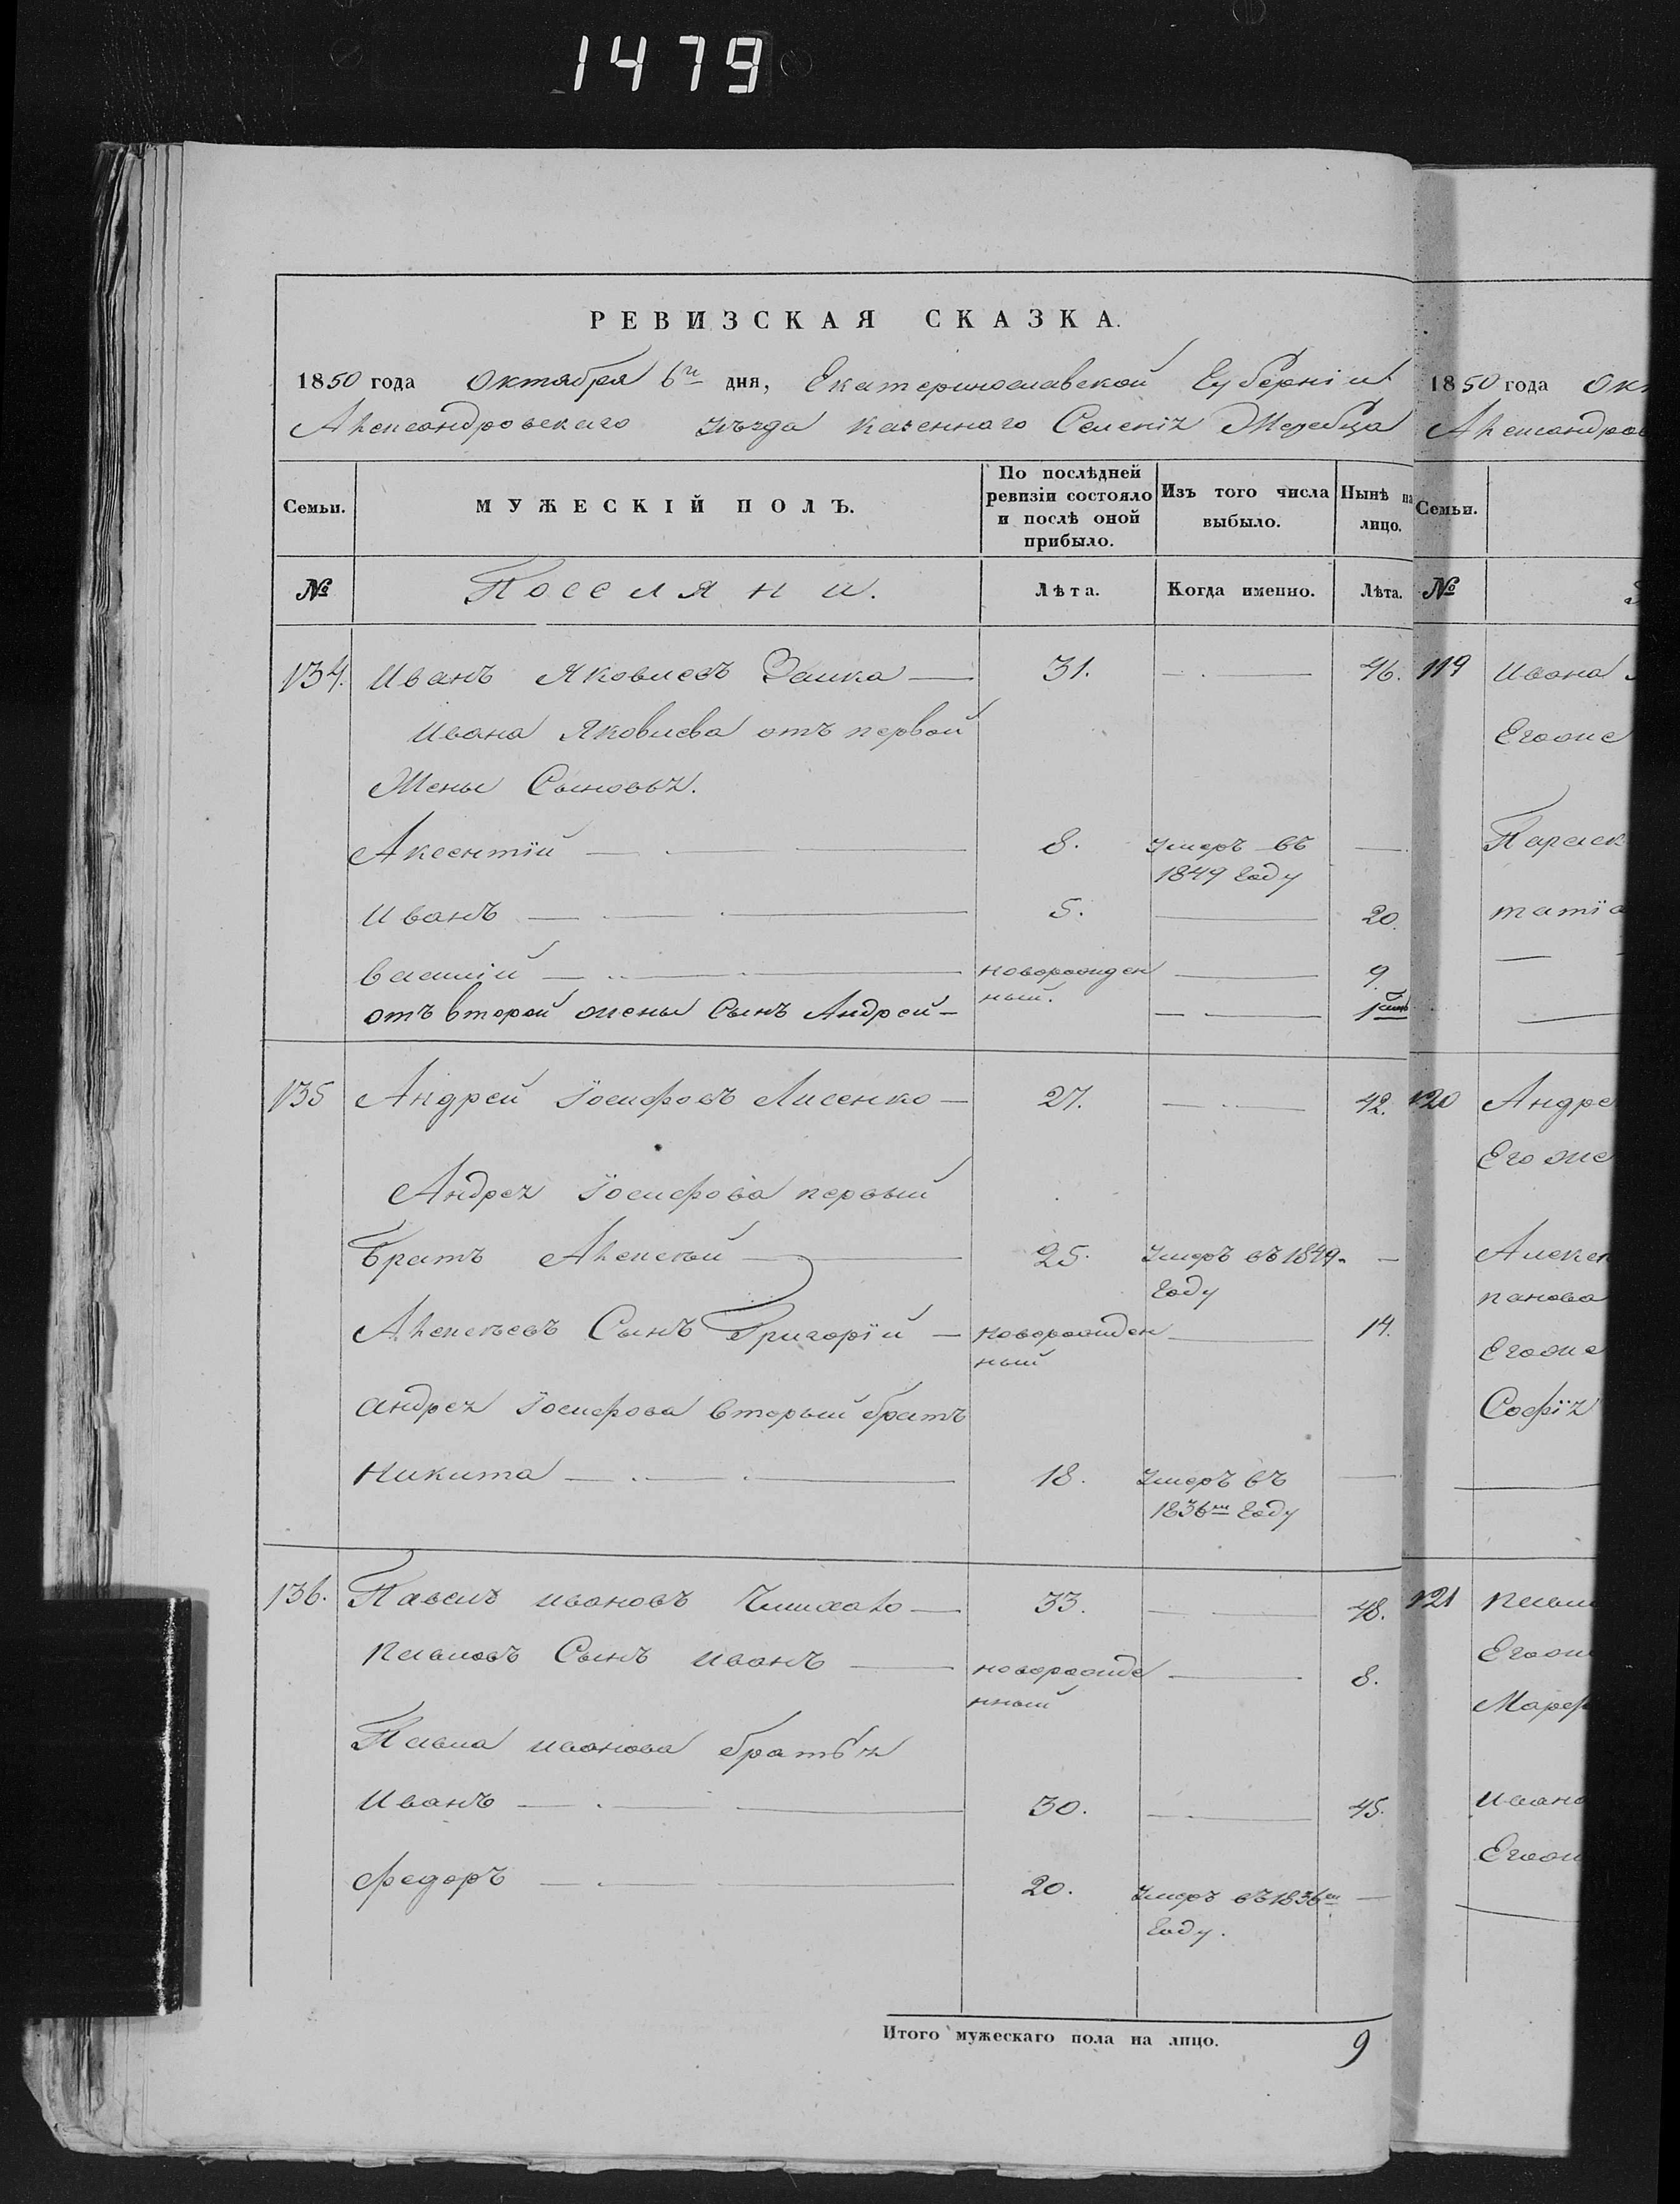 1479
РЕВИЗСКАЯ СКАЗКА.
1850 года Октября 6го дня, Екатеринославской Губерніи
Александровскаго уѣзда казеннаго Селенія Жеребца
Семьи.
МУЖЕСКІЙ ПОЛЪ.
По послѣдней ревизіи состояло и послѣ оной прибыло.
Изъ того числа выбыло.
Нынѣ на лицо.
№ Поселяни. Лѣта. Когда именно. Лѣта.
134. Иванъ Яковлевъ Заика — 31. — 46.
Ивана Яковлева отъ первой
Жены Сыновья.
Аксентій — 8. Умеръ въ —
1849 Году
Иванъ — 5. — 20.
Василій — новорожден — 9.
ный.
отъ второй жены Сынъ Андрей — —
135 Андрей Іосифовъ Лисенко — 27. — 42.
Андрея Іосифова первый
братъ Алексѣй — 25. Умеръ въ 1849. —
Году
Алексѣевъ Сынъ Григорій — новорожден — 14.
ный
Андрея Іосифова вторый братъ
Никита — 18. Умеръ въ —
1836м Году
136. Павелъ Ивановъ — 33. — 48.
Павловъ Сынъ Иванъ — новорожде — 8.
нный
Павла Иванова братья
Иванъ — 30. — 45.
Федоръ — 20. Умеръ въ 1836м —
Году.
Итого мужескаго пола на лицо. 9
1850 года Окт
Александров
Семьи.
№
119 Ивана
Егоже
Параск
Татіа
120 Андре
Егоже
Алексе
панова
Егоже
Софія
121 Павл
Егож
Мареф
Ивано
Егож